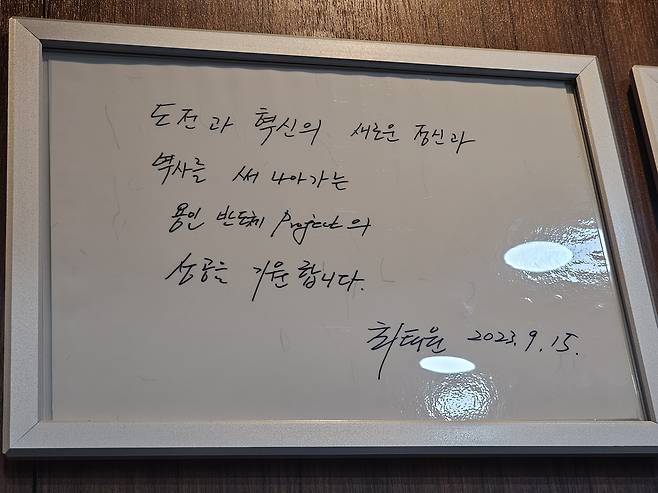 도전과 혁신의 새로운 정신과
역사를 써 나아가는
용인 반도체 Project의
성공을 기원합니다.
최태원 2023.9.15.